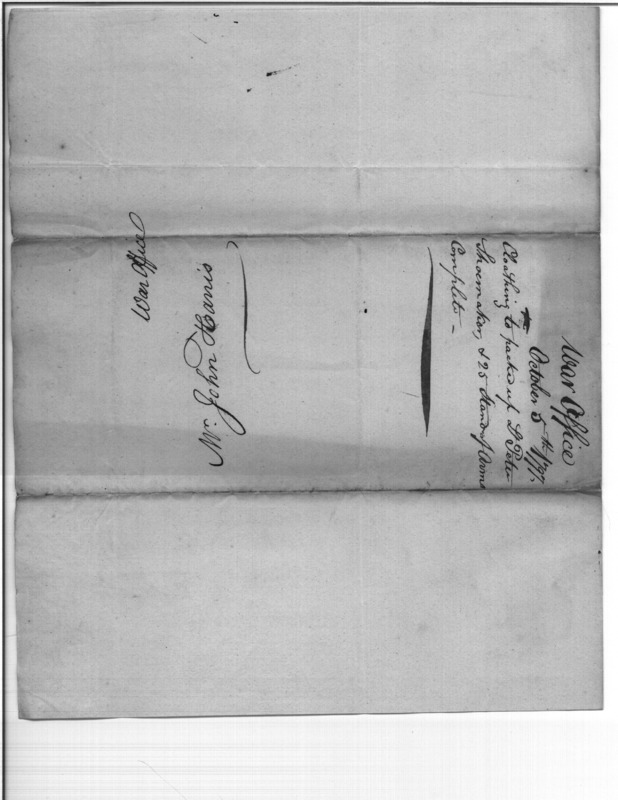 War Office
October 5th 1797,
Cloathing to packed up Lt Peter
Shoemaker, & 25 Stand of Arms
Complete —
Mr. John Harris
War Office